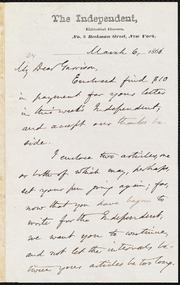 The Independent,
No. 5 Beekman Street, New York,
March 6, 1866
My Dear Garrison,
Enclosed find $10
in payment for yours letter
in this week's Independent,
and accept our thanks be-
side.
I enclose two articles, one
or both of which may, perhaps,
set your pen going again; for
now that you have begun to
write for the Independent,
we want you to continue,
and not let the intervals be-
tween yours articles be too long.